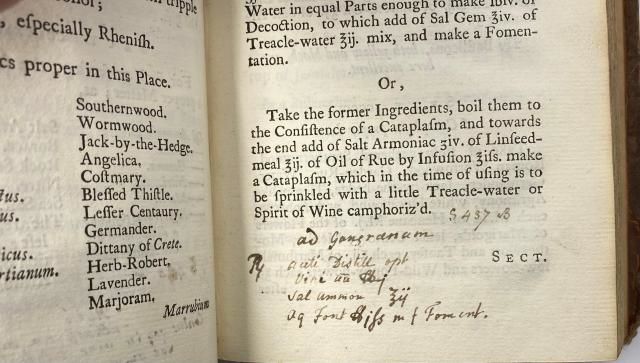 tripple
, eſpecially Rheniſh.
cs proper in this Place.
Southernwood.
Wormwood.
Jack-by-the-Hedge.
Angelica,
Coſtmary.
Bleſſed Thiſtle.
Leſſer Centaury.
Germander.
Dittany of Crete.
Herb-Robert.
Lavender.
Marjoram.
Marrubium
tus.
us.
icus.
rtianum.
Water in equal Parts enough to make ℔iv. of
Decoction, to which add of Sal Gem ʒiv. of
Treacle-water ℥ij. mix, and make a Fomen-
tation.
Or,
Take the former Ingredients, boil them to
the Conſiſtence of a Cataplaſm, and towards
the end add of Salt Armoniac ʒiv. of Linſeed-
meal ℥ij. of Oil of Rue by Infuſion ℥iſs. make
a Cataplaſm, which in the time of uſing is to
be ſprinkled with a little Treacle-water or
Spirit of Wine camphoriz'd.
S 437 B
ad Gangrænam
Distill opt
Vini
Sal ammon ℥ij
aq Font m f Foment.
SECT.